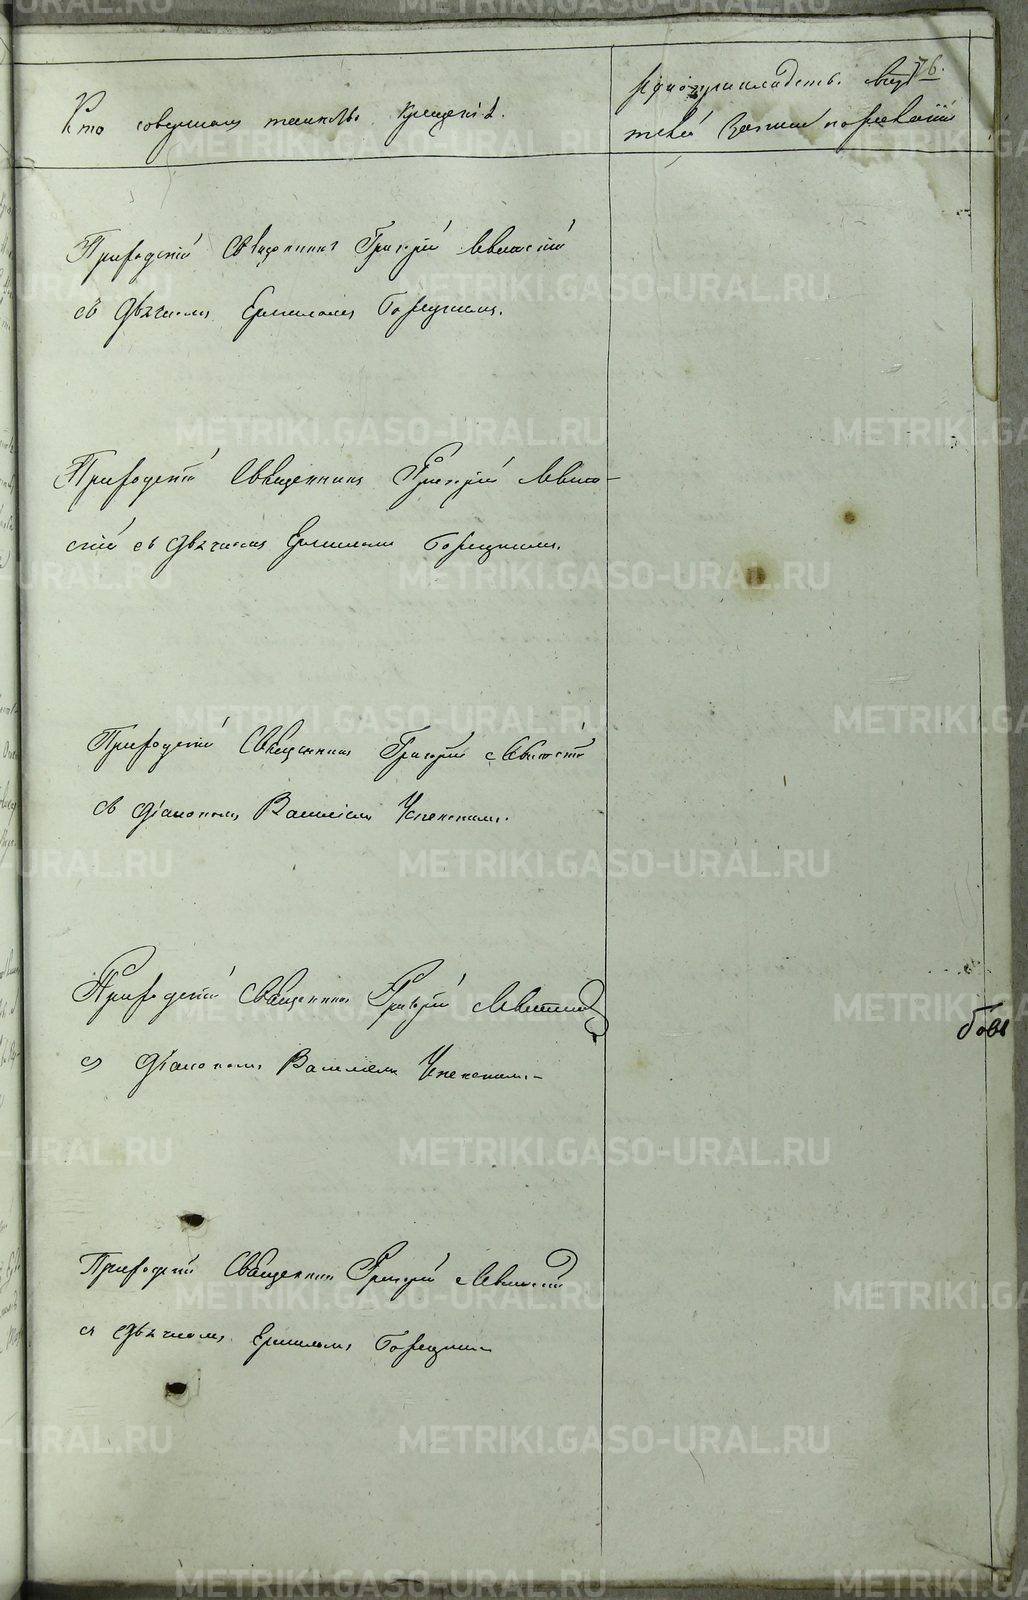 76.
Кто совершалъ таинство крещенія.
Рукоприкладство свидѣ-
телей записи по желанію
Приходскій Священникъ Григорій Левитскій
съ Дьячкомъ Ермиломъ Борецкимъ.
Приходскій Священникъ Григорій Левит-
скій съ Дьячкомъ Ермиломъ Борецкимъ.
Приходскій Священникъ Григорій Левитскій
съ Діакономъ Василіемъ Успенскимъ.
Приходскій Священникъ Григорій Левитскій
съ Діакономъ Василіемъ Успенскимъ.
Приходскій Священникъ Григорій Левитскій
съ Дьячкомъ Ермиломъ Борецкимъ
METRIKI.GASO-URAL.RU